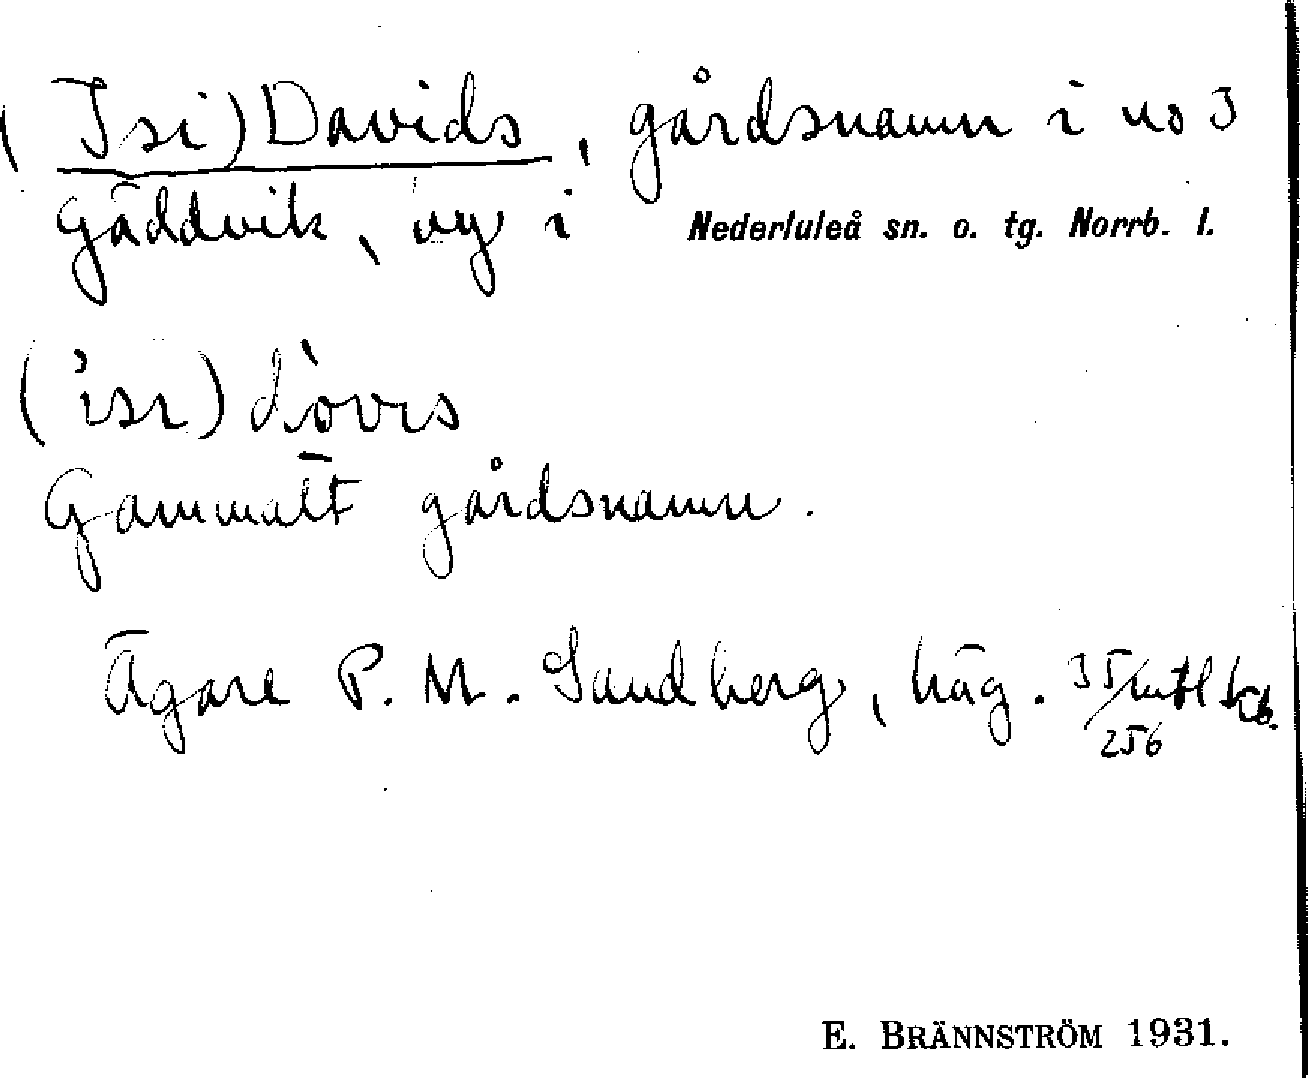 (Isi) Davids, gårdsnamn i no 3
Gäddvik, by i Nederluleå sn. o. tg. Norrb. l.
Gammalt gårdsnamn.
Ägare P. M. Sandberg, häg. 35/256 mtl
E. BRÄNNSTRÖM 1931.